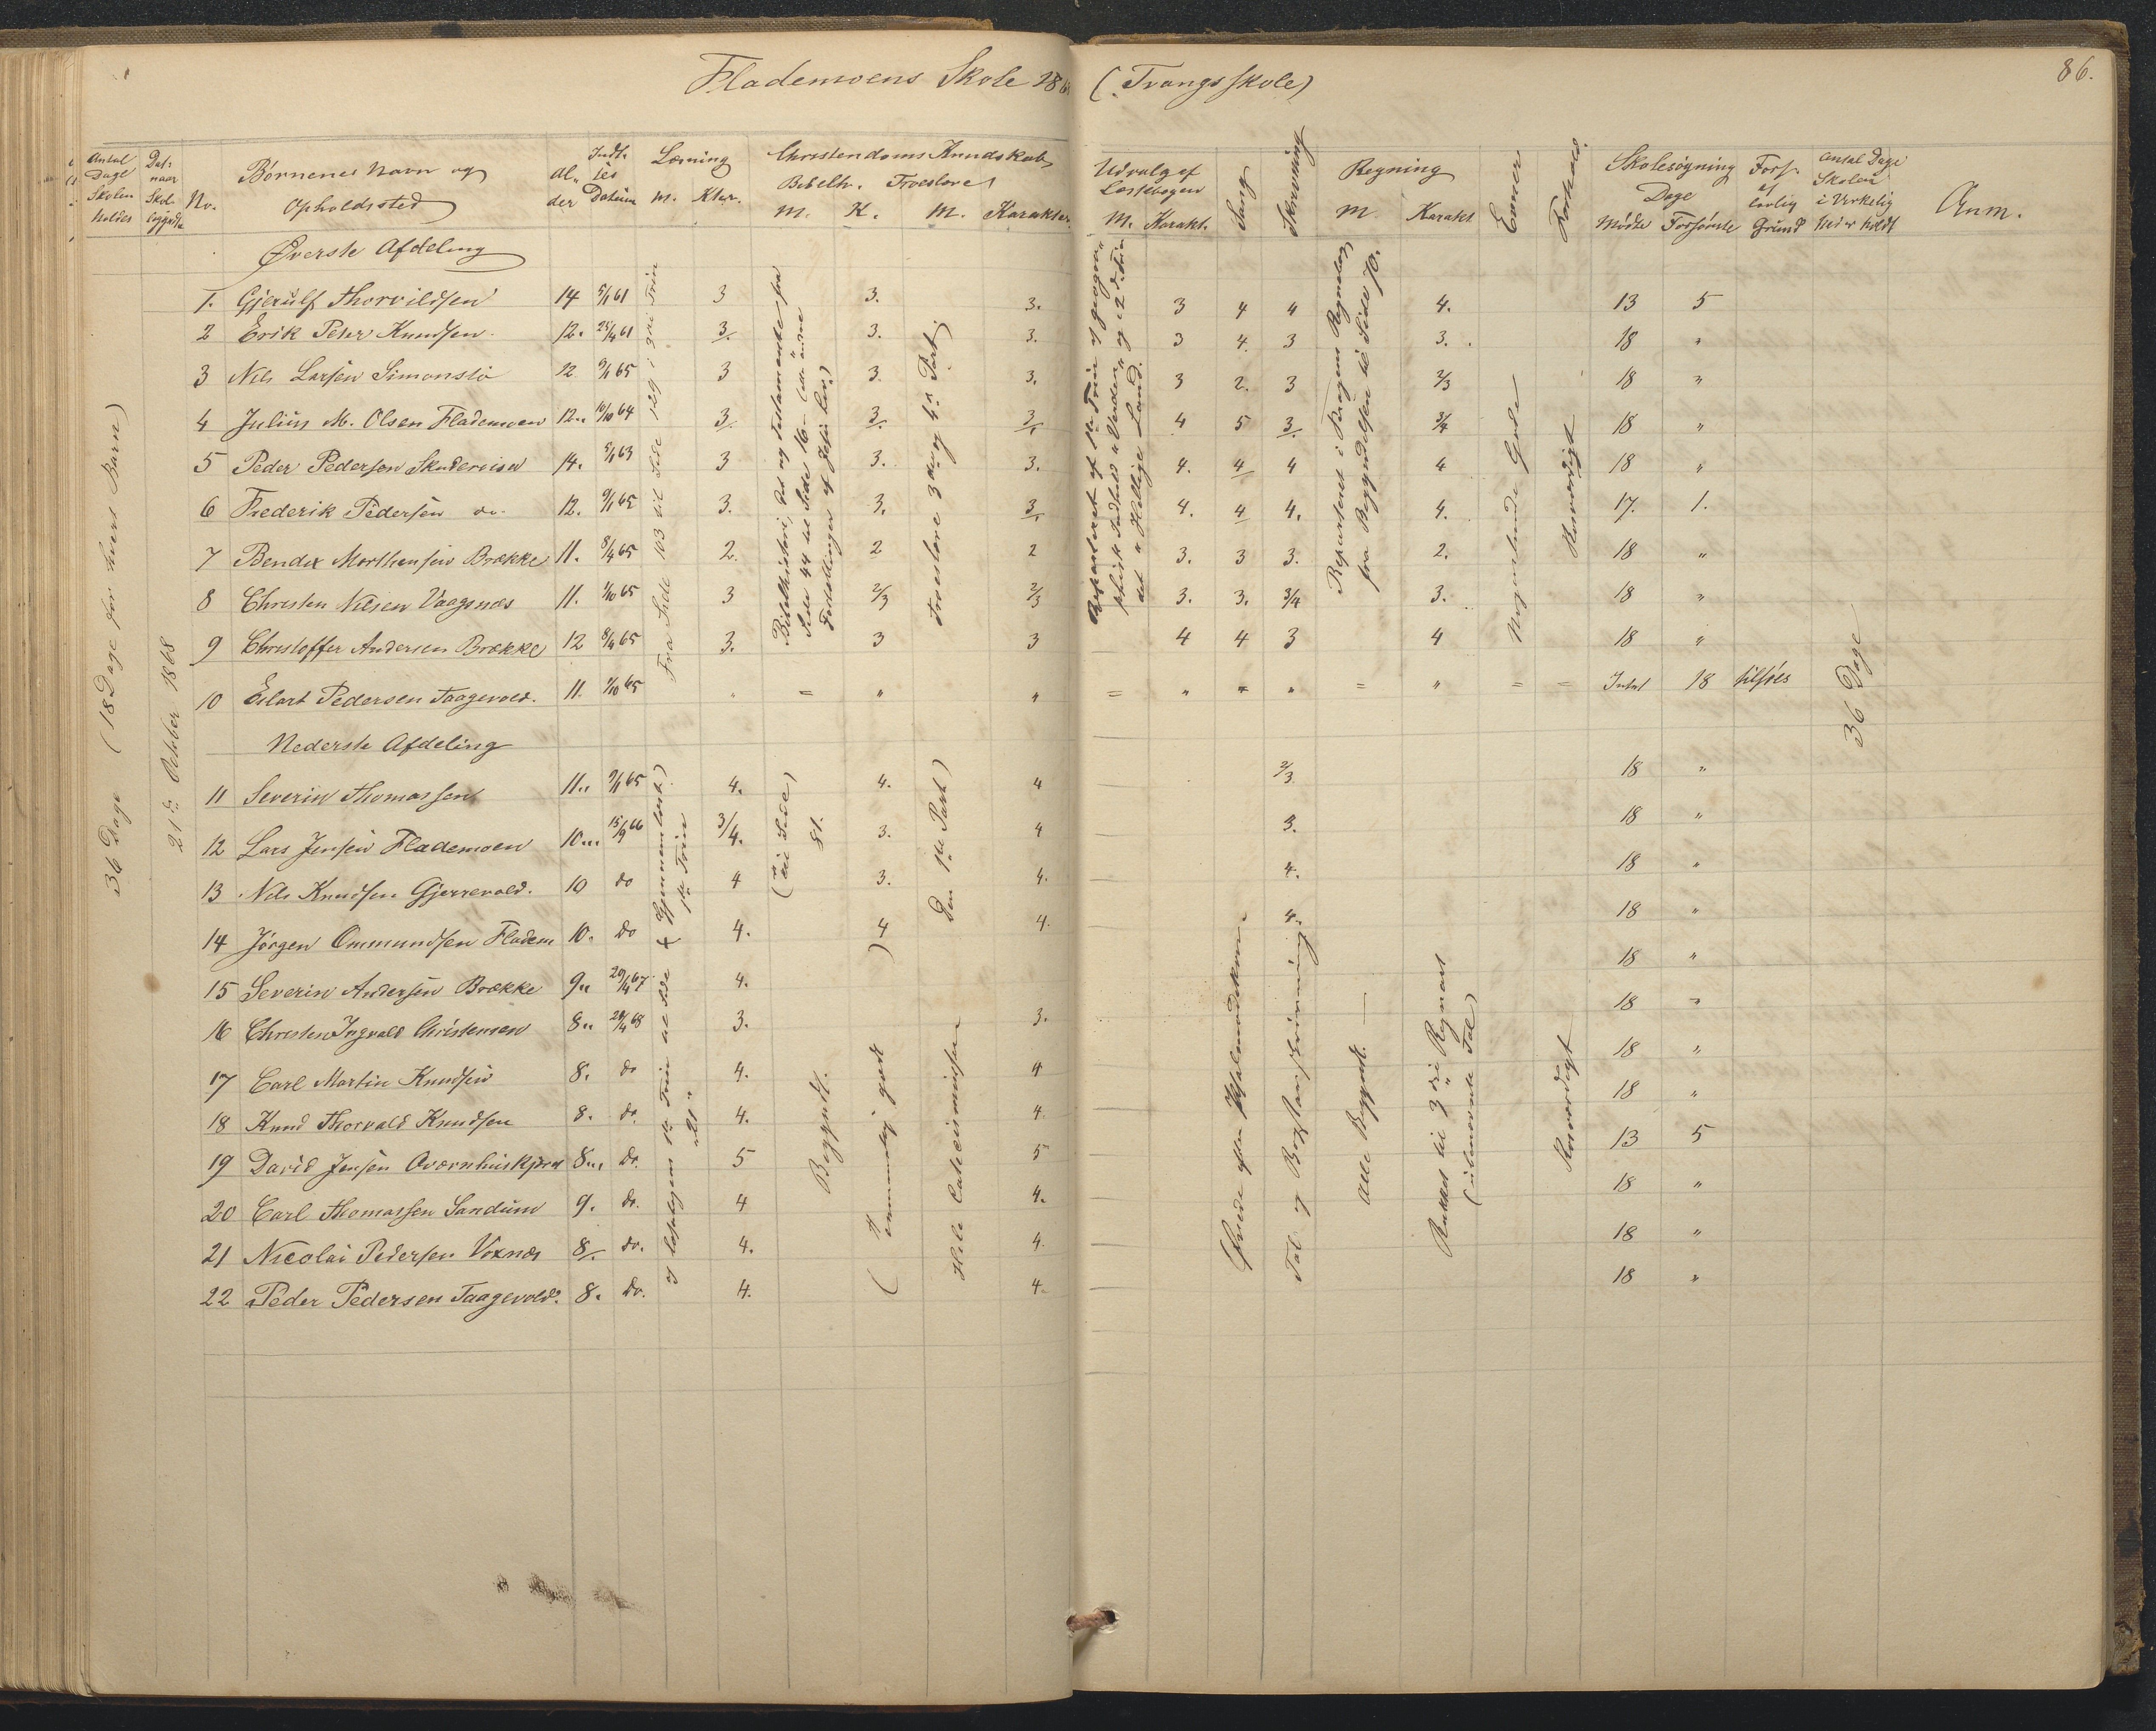 Flademoens Skole 186 (Tvangsskole) 86.
Antal Dage Skolen holdes
Dat. naar Skol. begyndte
No.
Børnenes Navn og Opholdssted
Alder
Indt. Datum
Læsning M. Kter.
Christendoms Kundskab
Bibelh. M. K.
Troeslære M. Karakter
Udvalg af Læsebogen M. Karakt.
Sang
Skrivning
Regning M Karakt
Evner
Forhold
Skolesøgning Dage Mødte Forsømte
Fors. af lovlig Grund
Antal Dage Skolen i Virkelig holdt
Anm.
36 Dage (18 Dage for hvert Barn)
21de October 1868
Øverste Afdeling
1. Gjerulf Thorvildsen 14 5/1 61 3 3. 3. 3 4 4 4. 13 5
2 Erik Peter Knudsen 12. 25/4 61 3. 3. 3. 3 4. 3 3. 18 "
3 Nils Larsen Simonstø 12 9/1 65 3 3. 3. 3 2. 3 2/3 18 "
4 Julius M. Olsen Flademoen 12.. 10/10 64 3. 3. 3. 4 5 3. 3/4 18 "
5 Peder Pedersen 14. 5/1 63 3 3. 3. 4. 4 4 4 18 "
6 Frederik Pedersen do. 12. 9/1 65 3. 3. 3. 4. 4 4. 4. 17. 1.
7 Bendix Morthensen Brække 11. 8/4 65 2. 2 2 3. 3 3. 2. 18 "
8 Christen Nilsen Vaagsnæs 11. 1/10 65 3 2/3 2/3 3. 3. 3/4 3. 18 "
9 Christoffer Andersen Brække 12 8/4 65 3. 3 3 4 4 3 4 18 "
10 Eilart Pedersen Taagevold. 11. 1/10 65 " = " " = " " " = " = = Intet 18 tilføes
Fra Side 103 til Side
Bibelhistorie, det ny Testamente fra
Side 44 til Side 16
Fortellinger af Jesu Liv)
Troeslære 3die og 4de Part)
Repeteret af 1ste Trin af geogra-
phisk Indhold "Verden" og i 2det Trin
det "Hellige Land".
Repeteret i Regnebog
fra Begyndelsen til Side 70.
Nogenlunde Gode
Roesværdigt
36 Dage
Nederste Afdeling
11 Severin Thomassen 11.. 9/1 65 4. 4. 4 2/3 18 "
12 Lars Jensen Flademoen 10... 15/9 66 3/4. 3. 4 3. 18 "
13 Nils Knudsen Gjerrevold. 10 do 4 3. 4. 4. 18 "
14 Jørgen Ommundsen Fladem 10. do 4. 4 4. 4. 18 "
15 Severin Andersen Brække 9.. 20/4 67 4. 18 "
16 Christen Ingvald Christensen 8.. 20/4 68 3. 3. 18 "
17 Carl Martin Knudsen 8. do 4. 4 18 "
18 Knud Thorvald Knudsen 8. do. 4. 4. 18 "
19 David Jensen Qværnhuskjær 8... do. 5 5 13 5
20 Carl Thomassen Sandum 9. do. 4 4. 18 "
21 Nicolai Pedersen Voxnæs 8. do. 4. 4. 18 "
22 Peder Pedersen Taagevold. 8. do. 4. 4. 18 "
af Læsebogens 1ste Trin til Side
"21" (Gjennemlæst) 1ste Trin
(til Side) 81.
Begyndt.
(temmelig godt)
Den 1ste Part)
Hele Catecismussen
Øvede efter Psalmodikon.
Tal og Bogstavskrivning.
Alle Begyndt. —
Rukket til 3die Regneart
(ubenævnte Tal)
Roesværdigt